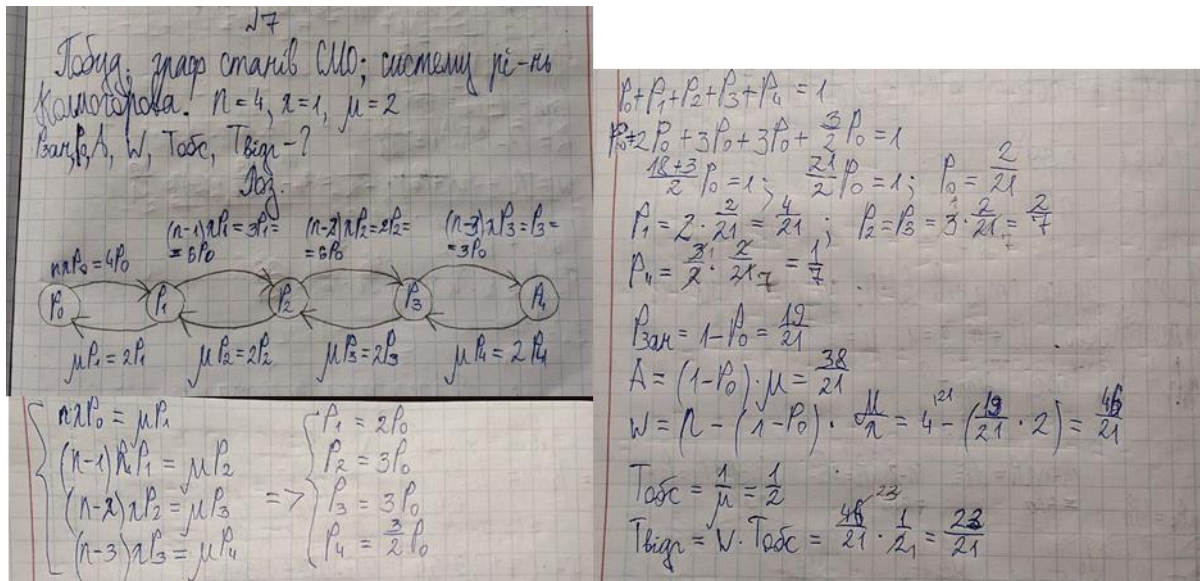 №7
Побуд. граф станів СМО; систему рі-нь
Колмогорова. n = 4, λ = 1, μ = 2
Рзан, P₀, A, W, Тобс, Твідг - ?
Роз.
nλP₀ = 4P₀
(n-1)λP₁ = 3P₁ =
= 6P₀
(n-2)λP₂ = 2P₂ =
= 6P₀
(n-3)λP₃ = P₃ =
= 3P₀
P₀ P₁ P₂ P₃ P₄
μP₁ = 2P₁ μP₂ = 2P₂ μP₃ = 2P₃ μP₄ = 2P₄
nλP₀ = μP₁
(n-1)λP₁ = μP₂
(n-2)λP₂ = μP₃
(n-3)λP₃ = μP₄
=>
P₁ = 2P₀
P₂ = 3P₀
P₃ = 3P₀
P₄ = 3/2 P₀
P₀ + P₁ + P₂ + P₃ + P₄ = 1
P₀ + 2P₀ + 3P₀ + 3P₀ + 3/2 P₀ = 1
(18+3)/2 P₀ = 1; 21/2 P₀ = 1; P₀ = 2/21
P₁ = 2 · 2/21 = 4/21; P₂ = P₃ = 3 · 2/21 = 2/7
P₄ = 3/2 · 2/21 7 = 1/7
Рзан = 1 - P₀ = 19/21
A = (1 - P₀) · μ = 38/21
W = n - (1 - P₀) · μ/λ = 4 - (19/21 · 2) = 46/21
Тобс = 1/μ = 1/2
Твідг = W · Тобс = 46/21 · 1/2 = 23/21